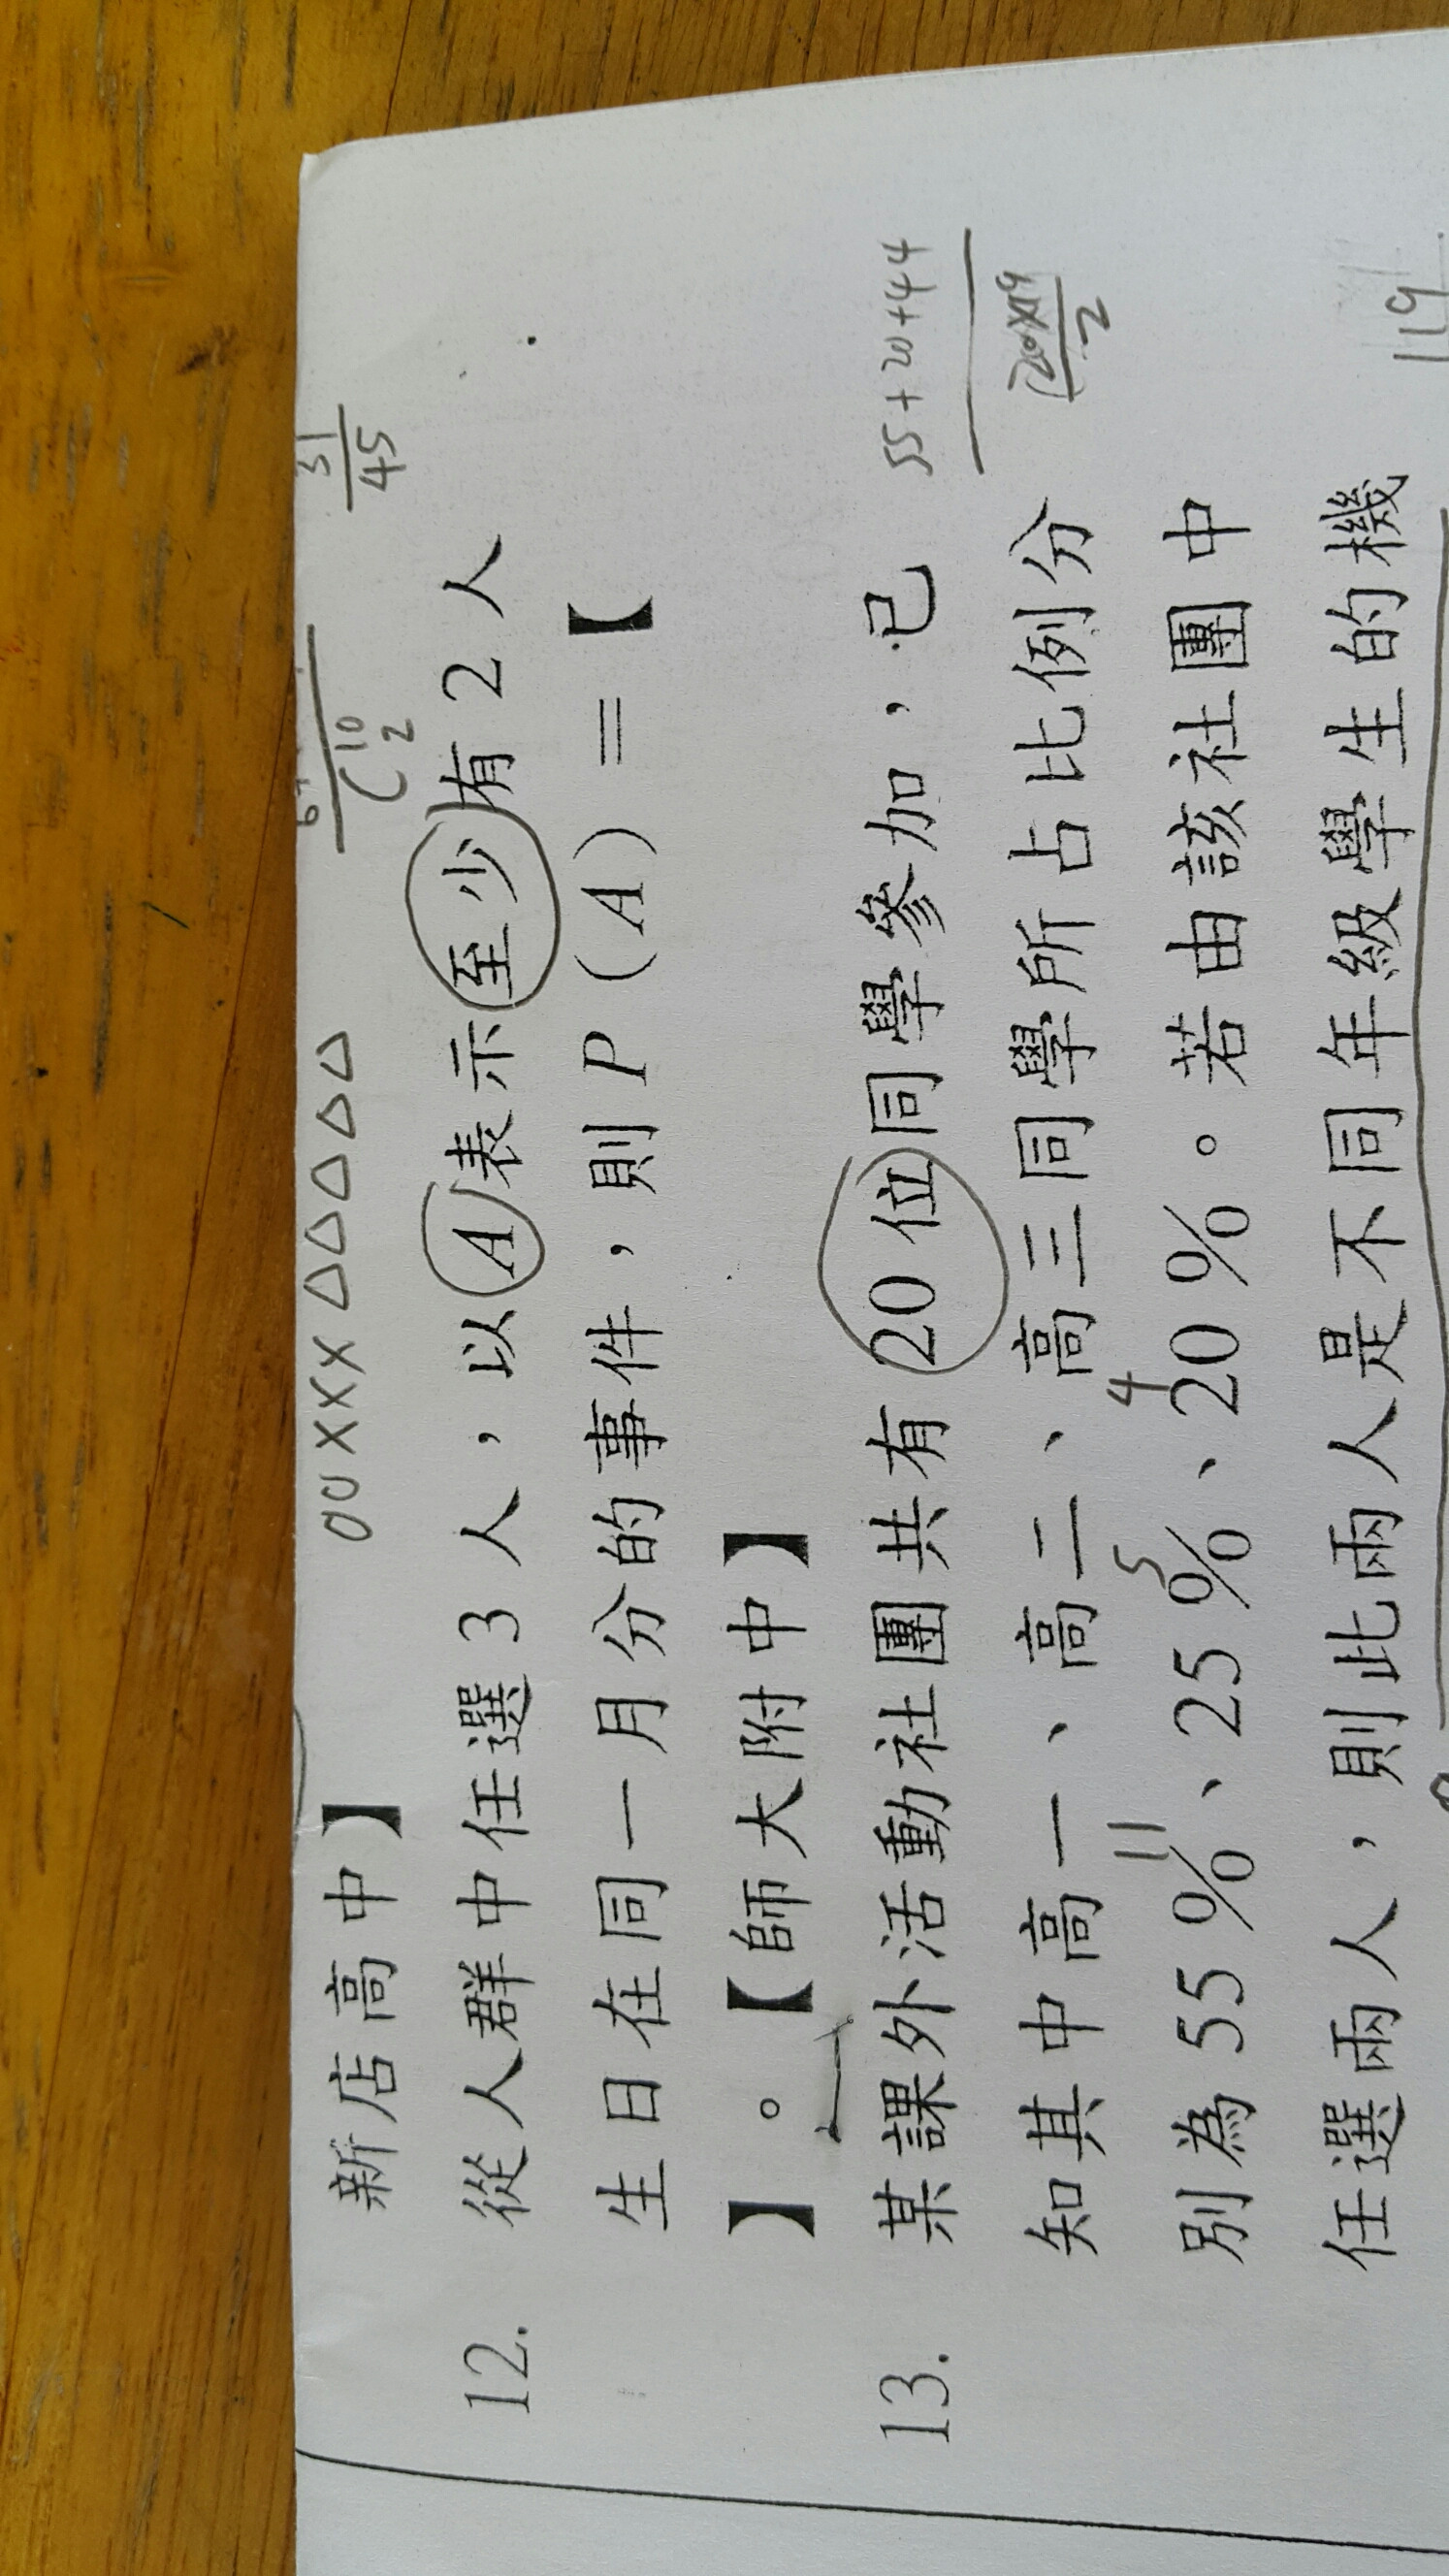 OO×××△△△△△
31
45
(10
2
新店高中】
12. 從人群中任選 3 人，以 A 表示至少有 2 人
生日在同一月分的事件，則 P (A) =【
】。【師大附中】
55+20+44
20×19
2
13. 某課外活動社團共有 20 位同學參加，已
知其中高一、高二、高三同學所占比例分
11 5 4
別為 55 %、25 %、20 %。若由該社團中
任選兩人，則此兩人是不同年級學生的機
119